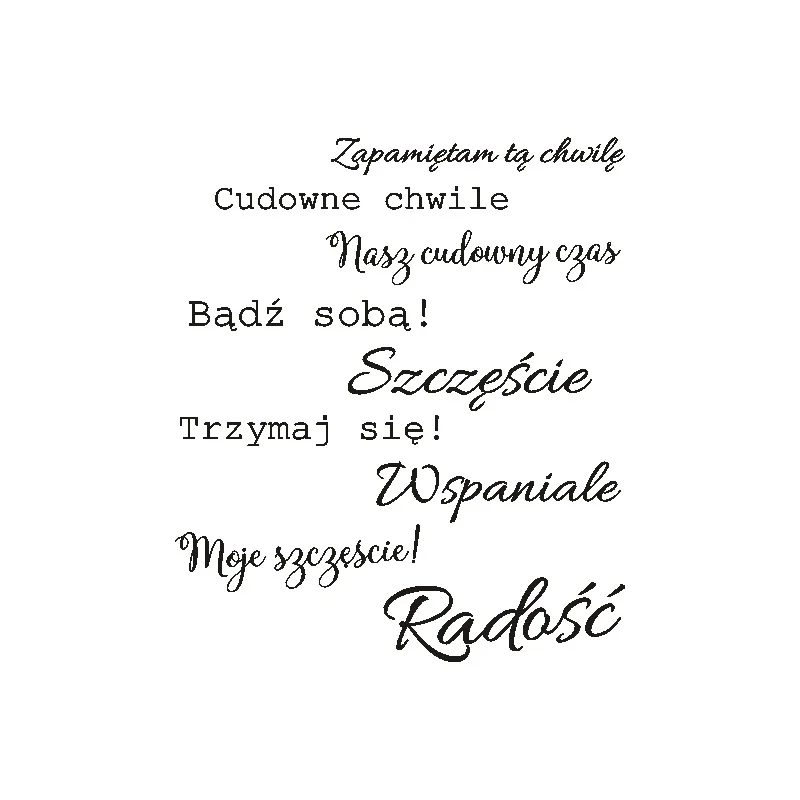 Zapamiętam tą chwilę
Cudowne chwile
Nasz cudowny czas
Bądź sobą!
Szczęście
Trzymaj się!
Wspaniale
Moje szczęście!
Radość